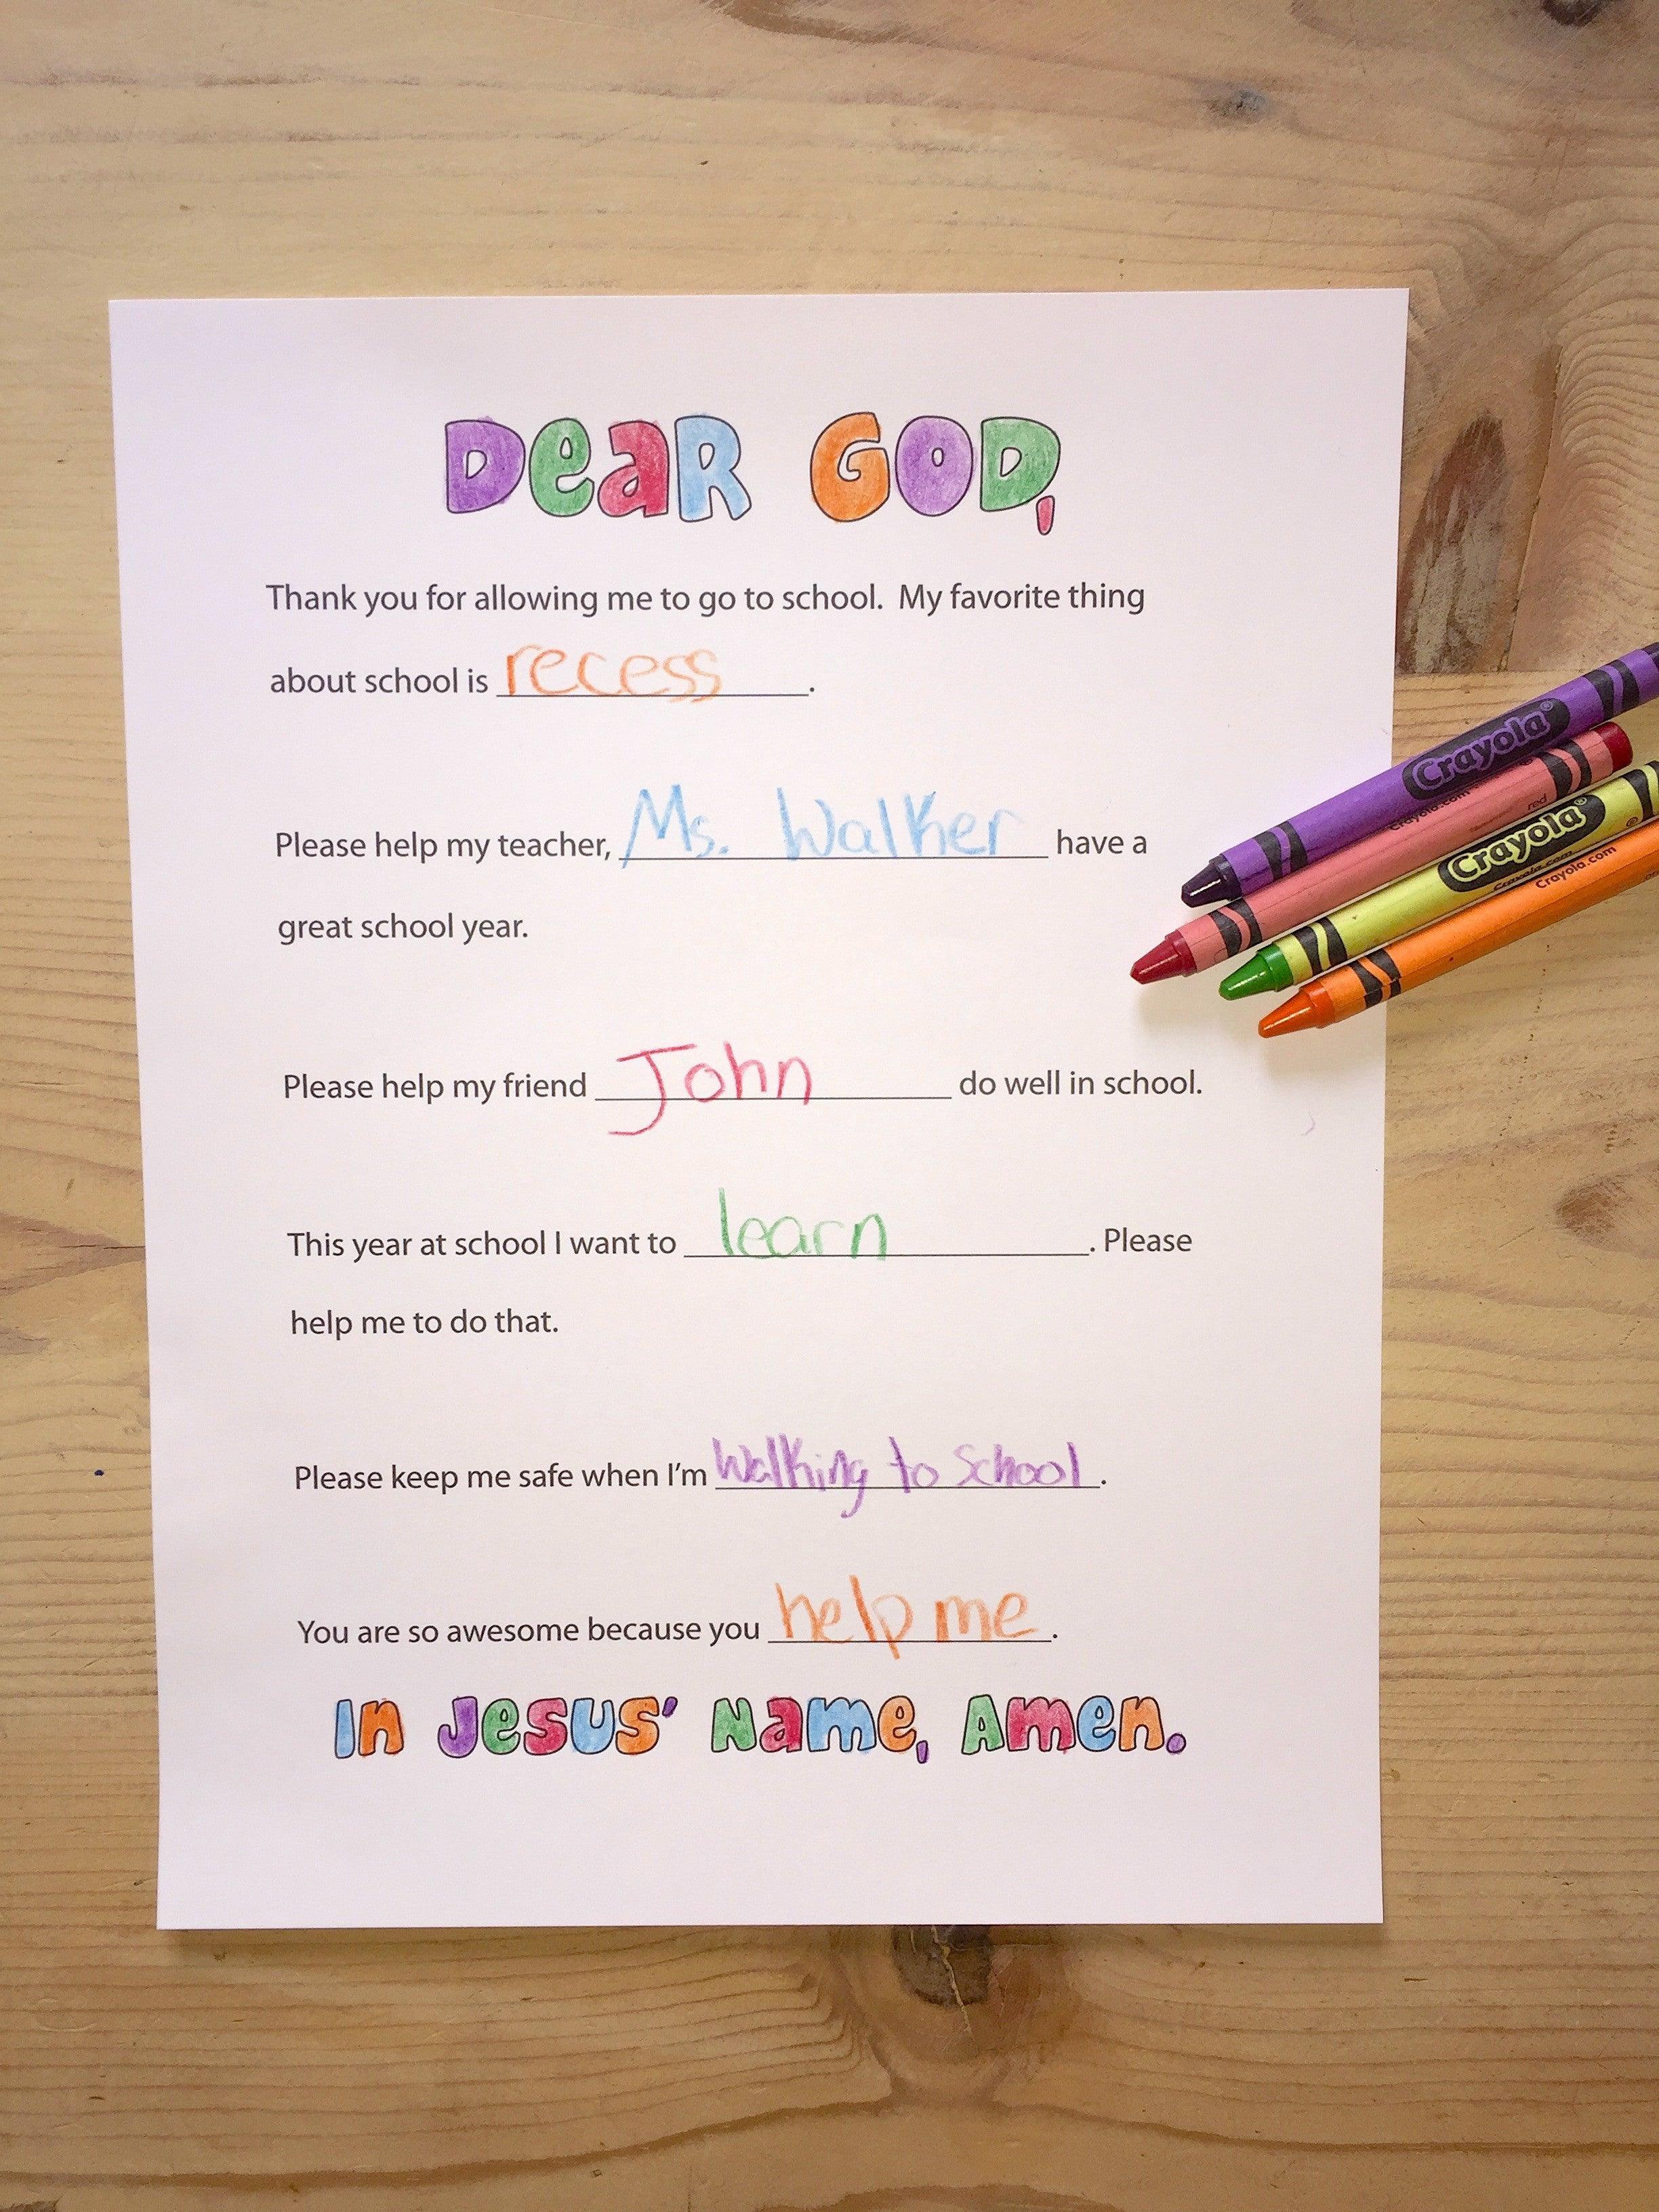 DeaR GOD,
Thank you for allowing me to go to school. My favorite thing
about school is recess.
Please help my teacher, Ms. Walker have a
great school year.
Please help my friend John do well in school.
This year at school I want to learn. Please
help me to do that.
Please keep me safe when I'm Walking to School.
You are so awesome because you help me.
In Jesus' Name, Amen.
Crayola®
Crayola.com
red
Crayola®
Crayola.com
Crayola.com